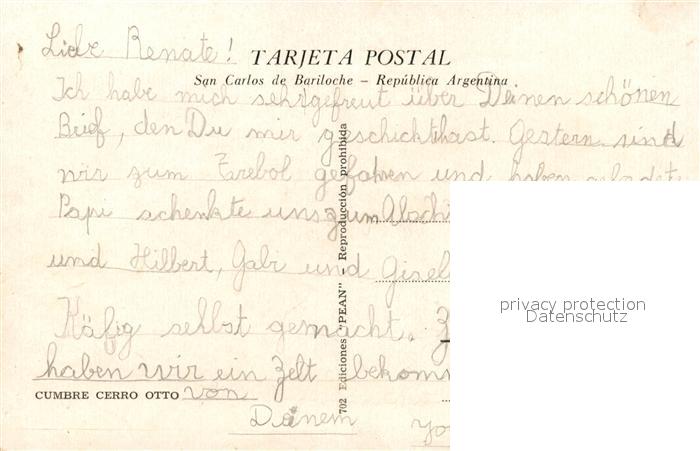 Liebe Renate!
TARJETA POSTAL
San Carlos de Bariloche – República Argentina
Ich habe mich sehr gefreut über Deinen schönen
Brief, den Du mir geschickt hast. Gestern sind
wir zum Trebol gefahren und haben gebadet
Papi schenkte uns zum Abschi
und Hilbert, Gabi und Gisel
Käfig selbst gemacht.
haben wir ein Zelt bekom
CUMBRE CERRO OTTO von
Deinem
702 Ediciones "PEAN" - Reproducción prohibida
privacy protection
Datenschutz